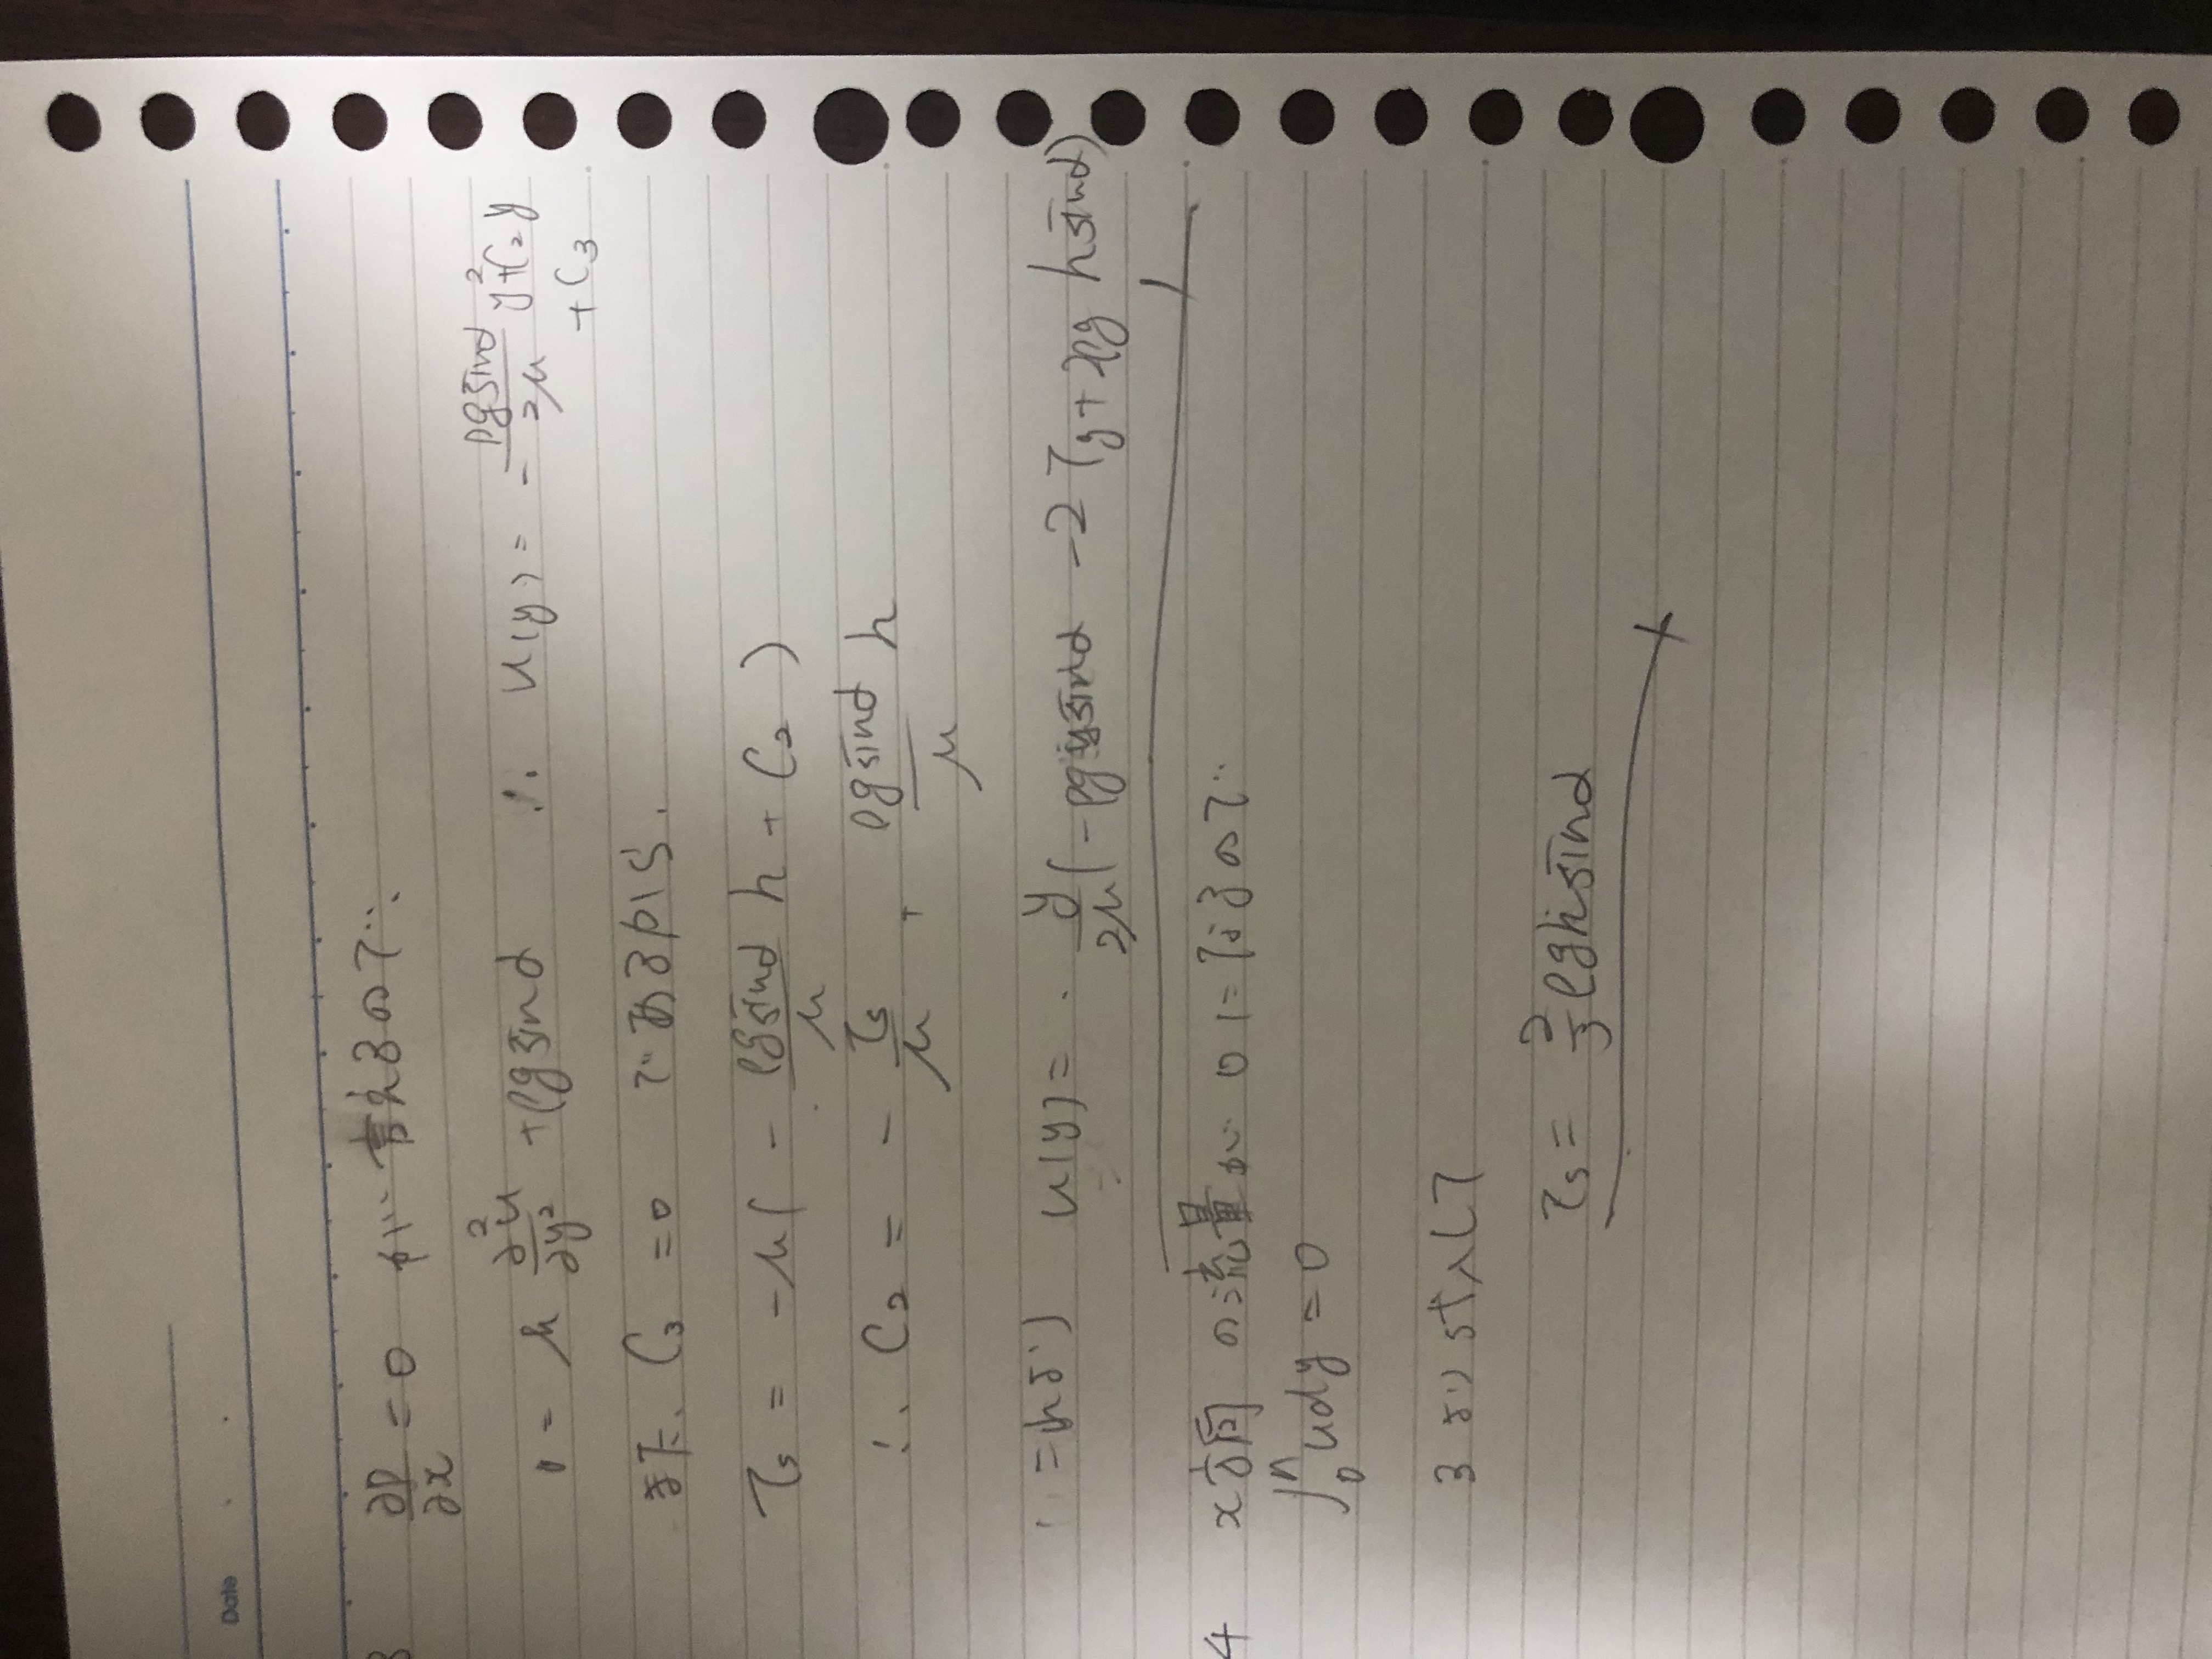 Date
3 ∂P/∂x = 0 が言えるので
0 = μ ∂²u/∂y² + ρg sinα ∴ u(y) = - ρg sinα/2μ y² + C₂y + C₃
また、C₃ = 0 であるから、
τs = -μ( - ρg sinα/μ h + C₂ )
∴ C₂ = - τs/μ + ρg sinα/μ h
これより u(y) = y/2μ (-ρgy sinα - 2τs + 2ρg h sinα)
4 x方向の流量が0になるので
∫₀ʰ u dy = 0
3より代入して
τs = 2/3 ρgh sinα